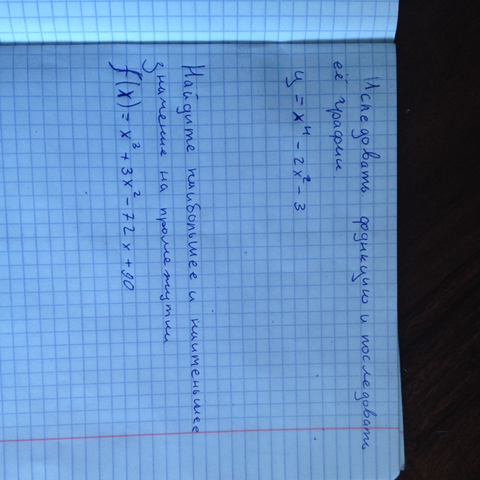 Иследовать фднкцию и последовать
её графии
y = x⁴ - 2x² - 3
Найдите наибольшее и наитеньшее
значение на промежутки
f'(x) = x³ + 3x² - 72x + 90